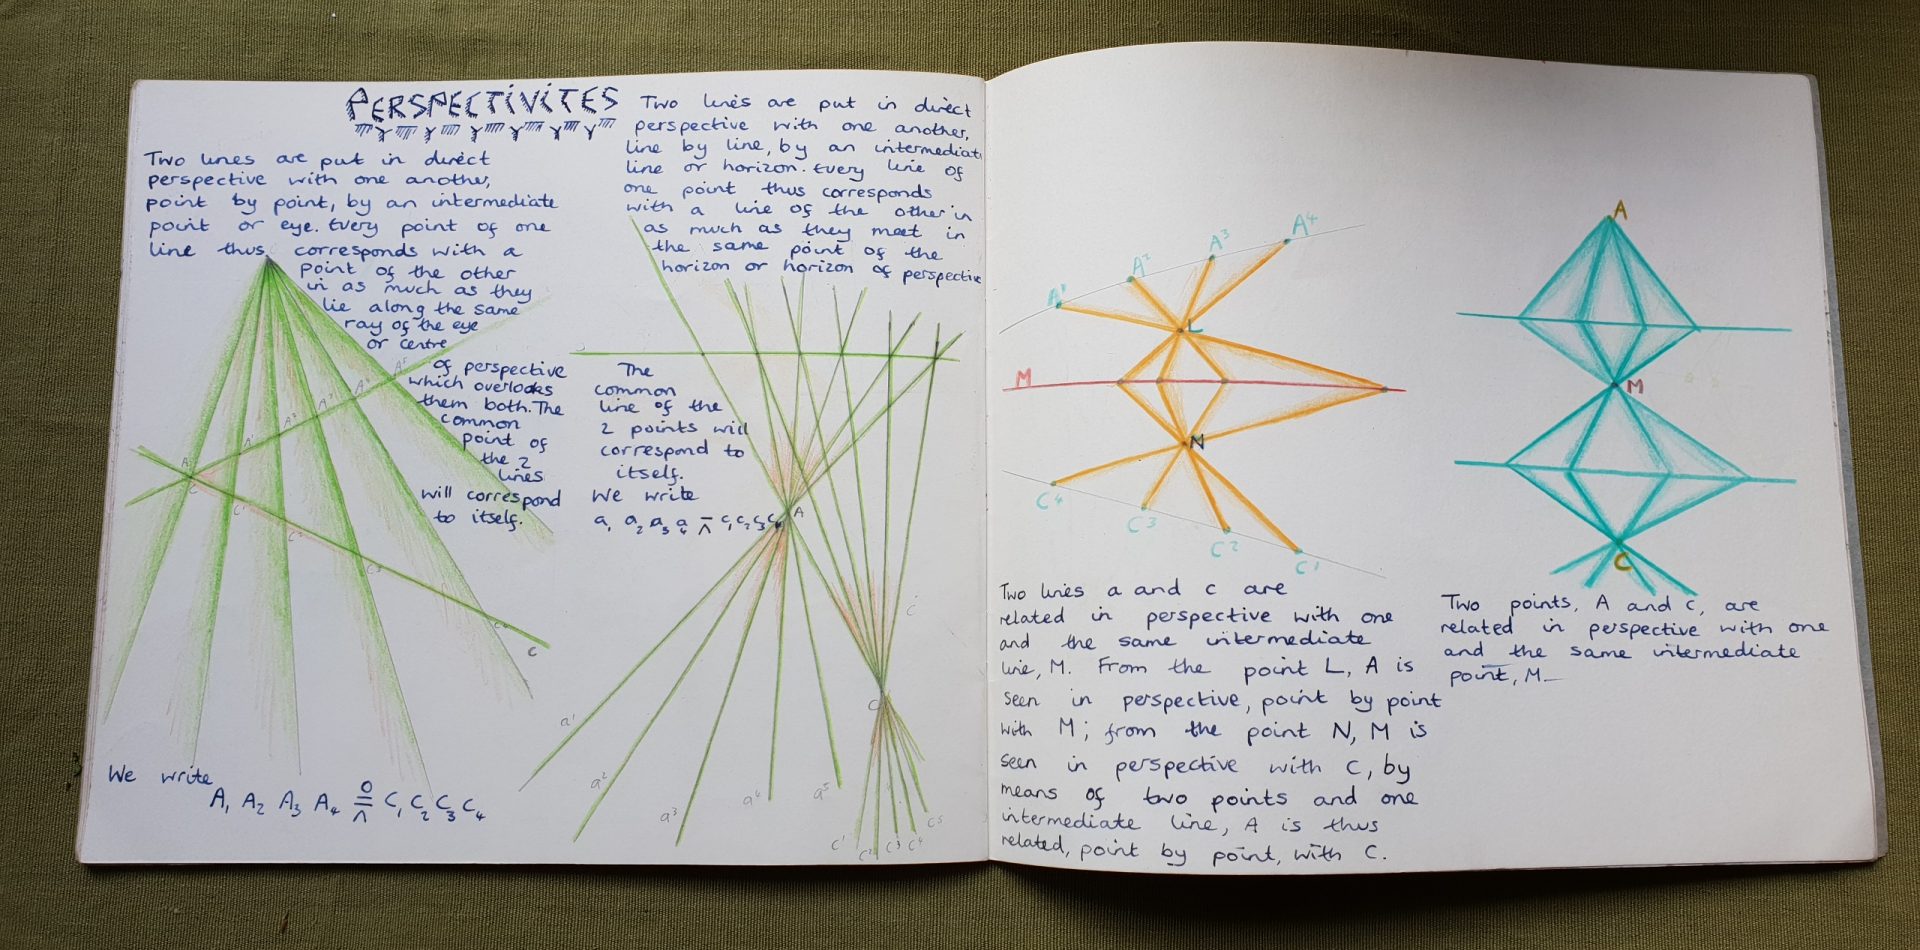 PERSPECTIVITES
Two lines are put in direct
perspective with one another,
point by point, by an intermediate
point or eye. Every point of one
line thus corresponds with a
point of the other
in as much as they
lie along the same
ray of the eye
or centre
of perspective
which overlooks
them both. The
common
point of
the 2
lines
will correspond
to itself.
A¹
A²
A³
A⁴
A⁵
C¹
C²
C³
C⁴
C
We write
A₁ A₂ A₃ A₄ ≞ C₁ C₂ C₃ C₄
Two lines are put in direct
perspective with one another,
line by line, by an intermediate
line or horizon. Every line of
one point thus corresponds
with a line of the other in
as much as they meet in
the same point of the
horizon or horizon of perspective
The
common
line of the
2 points will
correspond to
itself.
We write
a₁ a₂ a₃ a₄ ⊼ c₁ c₂ c₃ c₄
A
C
a¹
a²
a³
a⁴
a⁵
C¹
C²
C³
C⁴
C⁵
A¹
A²
A³
A⁴
L
M
N
C⁴
C³
C²
C¹
Two lines a and c are
related in perspective with one
and the same intermediate
line, M. From the point L, A is
seen in perspective, point by point
with M; from the point N, M is
seen in perspective with C, by
means of two points and one
intermediate line, A is thus
related, point by point, with C.
A
M
C
Two points, A and c, are
related in perspective with one
and the same intermediate
point, M_